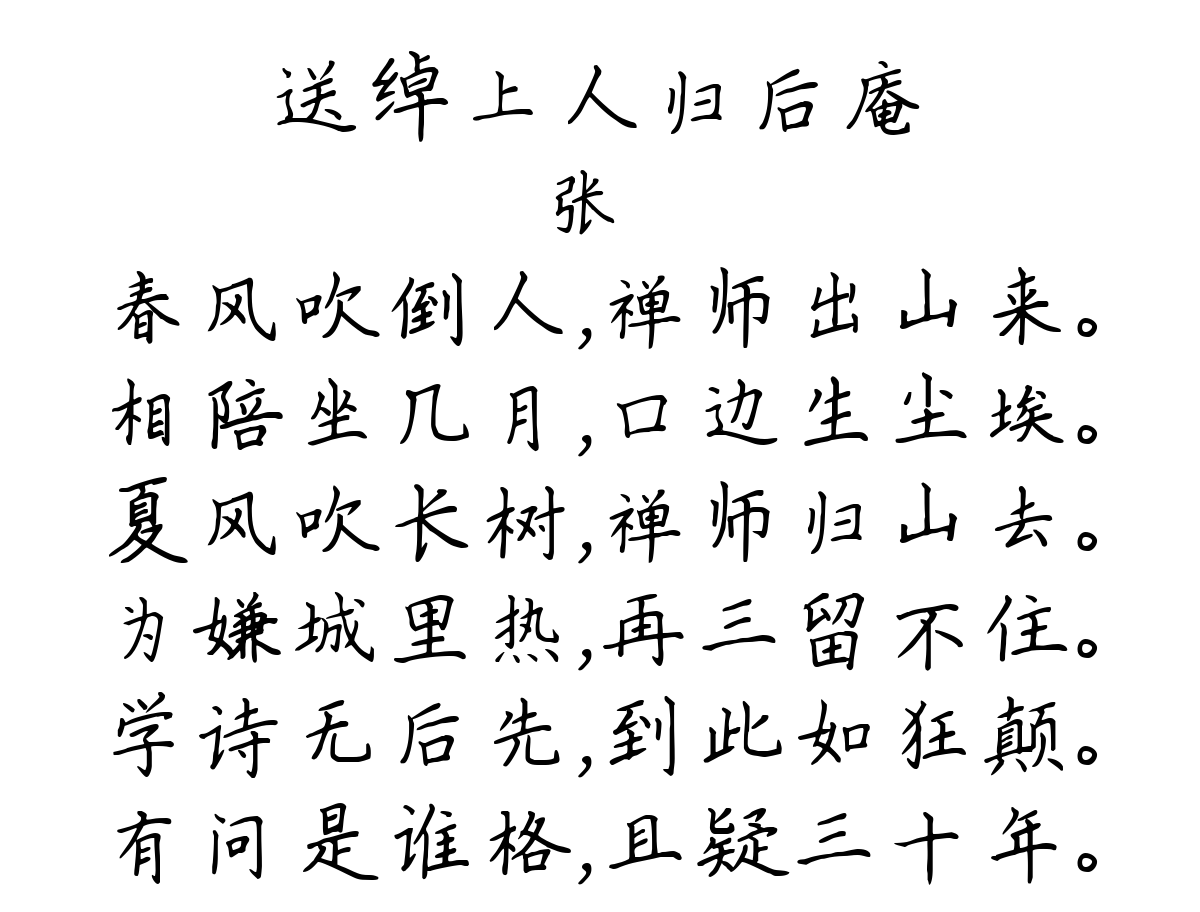 送绰上人归后庵
张
春风吹倒人,禅师出山来。
相陪坐几月,口边生尘埃。
夏风吹长树,禅师归山去。
为嫌城里热,再三留不住。
学诗无后先,到此如狂颠。
有问是谁格,且疑三十年。